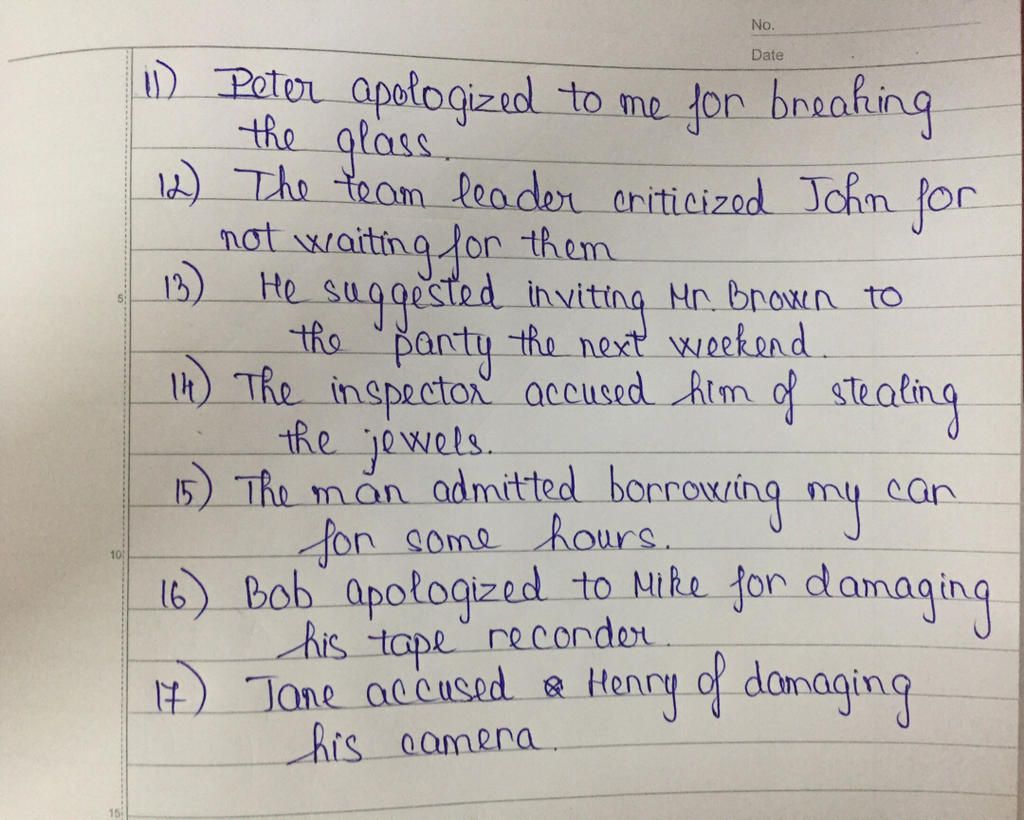 No.
Date
11) Peter apologized to me for breaking
the glass.
12) The team leader criticized John for
not waiting for them
13) He suggested inviting Mr. Brown to
5
the party the next weekend.
14) The inspector accused him of stealing
the jewels.
15) The man admitted borrowing my car
for some hours.
10
16) Bob apologized to Mike for damaging
his tape recorder.
17) Jane accused Henry of damaging
his camera.
15